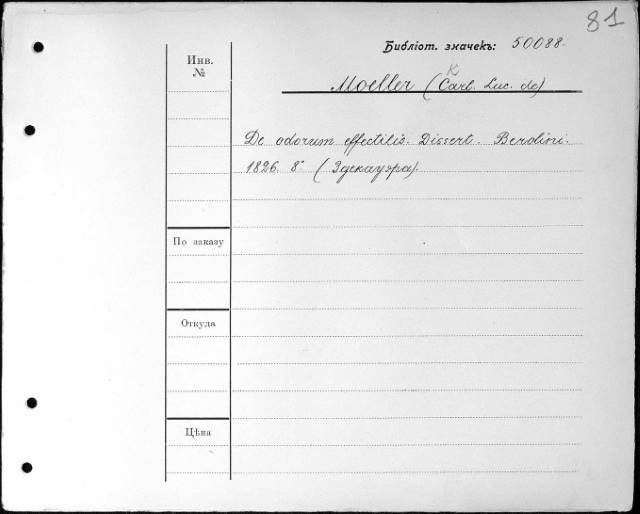 81
Библіот. значекъ: 50088.
Инв.
№
К
Moeller (Carl. Luc. de)
De odorum effectilis. Dissert. Berolini.
1826. 8° (Здекауэра).
По заказу
Откуда
Цѣна